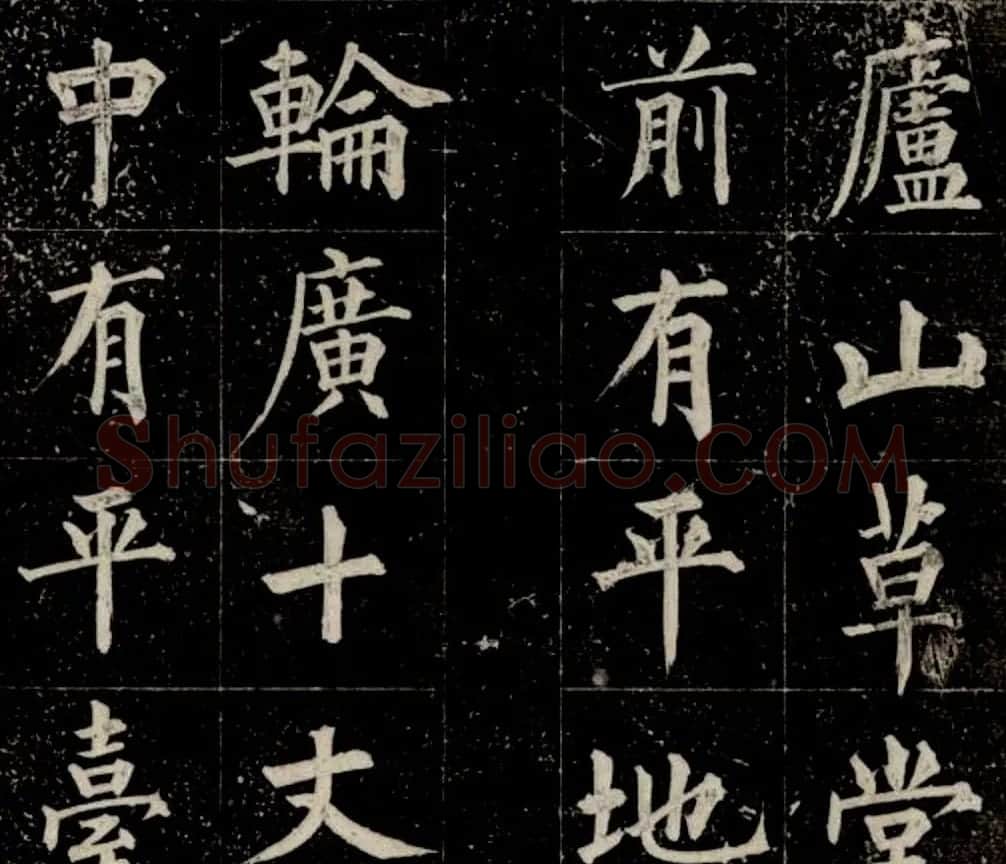 廬山草堂
前有平地
輪廣十丈
中有平臺
Shufaziliao.COM